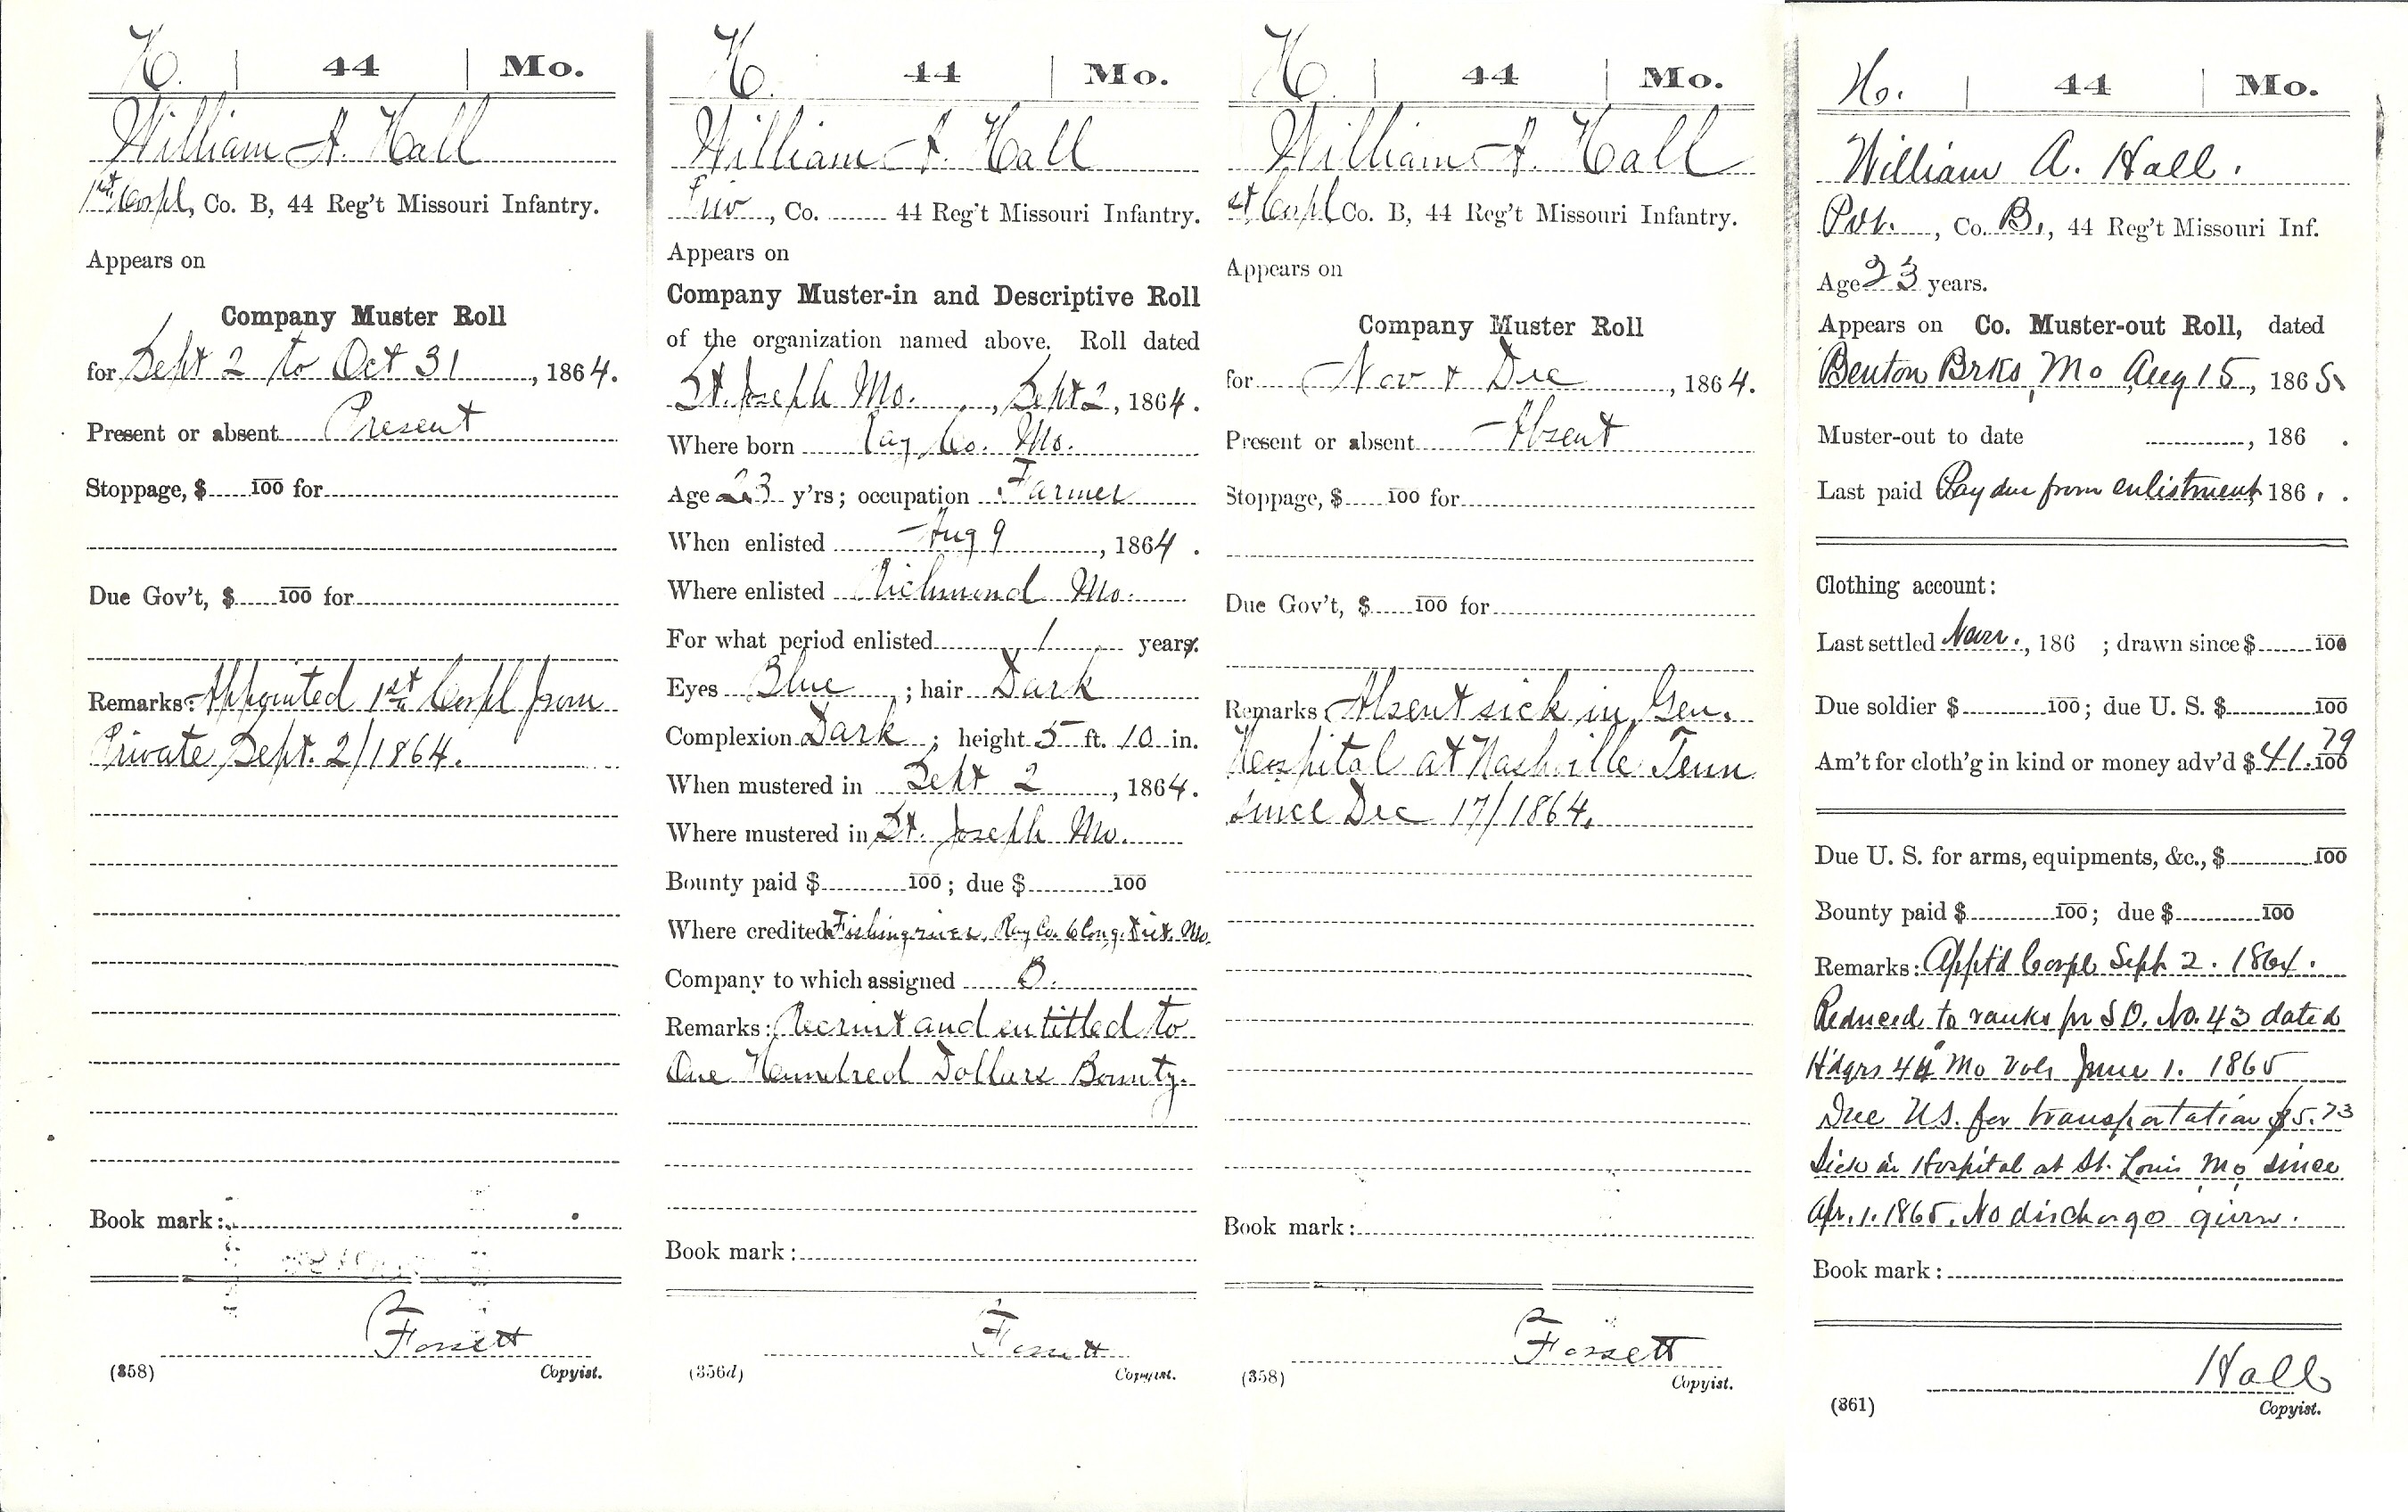 H. 44 Mo.
William A. Hall
1st Corpl, Co. B, 44 Reg't Missouri Infantry.
Appears on
Company Muster Roll
for Sept 2 to Oct 31, 1864.
Present or absent Present
Stoppage, $ 100 for
Due Gov't, $ 100 for
Remarks: Appointed 1st Corpl from
Private Sept. 2/1864.
Book mark:
Fossett
(358) Copyist.
H. 44 Mo.
William A. Hall
Priv, Co. 44 Reg't Missouri Infantry.
Appears on
Company Muster-in and Descriptive Roll
of the organization named above. Roll dated
St. Joseph Mo., Sept 2, 1864.
Where born Ray Co. Mo.
Age 23 y'rs; occupation Farmer
When enlisted Aug 9, 1864.
Where enlisted Richmond Mo.
For what period enlisted 1 years.
Eyes Blue; hair Dark
Complexion Dark; height 5 ft. 10 in.
When mustered in Sept 2, 1864.
Where mustered in St. Joseph Mo.
Bounty paid $ 100; due $ 100
Where credited Fishingriver, Ray Co. 6 Cong. Dist. Mo.
Company to which assigned B.
Remarks: Recruit and entitled to
One Hundred Dollars Bounty.
Book mark:
Fossett
(356d) Copyist.
H. 44 Mo.
William A. Hall
st Corpl Co. B, 44 Reg't Missouri Infantry.
Appears on
Company Muster Roll
for Nov & Dec, 1864.
Present or absent Absent
Stoppage, $ 100 for
Due Gov't, $ 100 for
Remarks: Absent sick in Gen.
Hospital at Nashville Tenn
since Dec 17/1864.
Book mark:
Fossett
(358) Copyist.
H. 44 Mo.
William A. Hall.
Pvt., Co. B., 44 Reg't Missouri Inf.
Age 23 years.
Appears on Co. Muster-out Roll, dated
Benton Brks, Mo Aug 15, 1865.
Muster-out to date , 186 .
Last paid Pay due from enlistment, 186 .
Clothing account:
Last settled Never., 186 ; drawn since $ 100
Due soldier $ 100; due U. S. $ 100
Am't for cloth'g in kind or money adv'd $ 41.79 100
Due U. S. for arms, equipments, &c., $ 100
Bounty paid $ 100; due $ 100
Remarks: Appt'd Corpl Sept 2. 1864.
Reduced to ranks pr S.O. No. 43 dated
Hdqrs 44" Mo Vols June 1. 1865
Due U.S. for transportation $5.73
Sick in Hospital at St. Louis Mo, since
Apr. 1. 1865. No discharge given.
Book mark:
Hall
(361) Copyist.